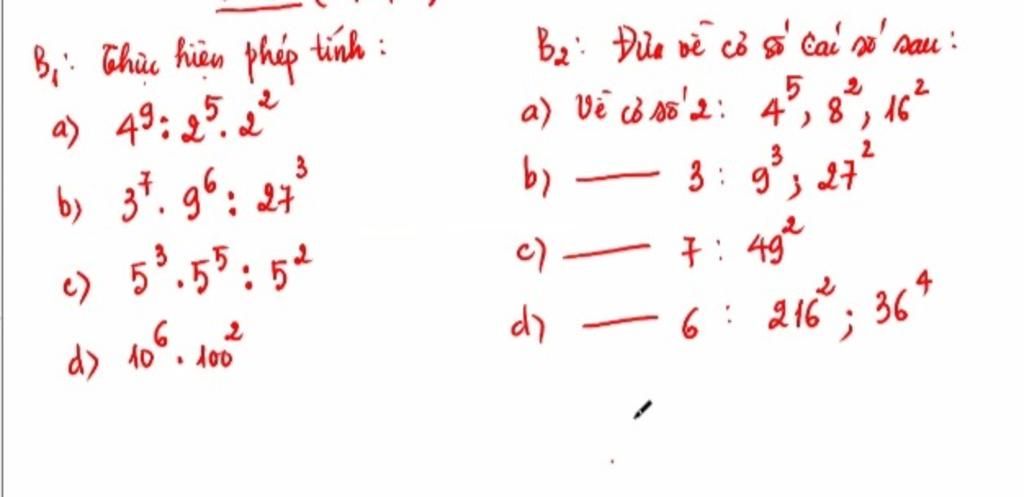 B₁: Thực hiện phép tính:
a) 4⁹ : 2⁵ . 2²
b) 3⁷ . 9⁶ : 27³
c) 5³ . 5⁵ : 5²
d) 10⁶ . 100²
B₂: Đưa về cơ số các số sau:
a) Về cơ số 2: 4⁵, 8², 16²
b) — 3 : 9³; 27²
c) — 7 : 49²
d) — 6 : 216²; 36⁴